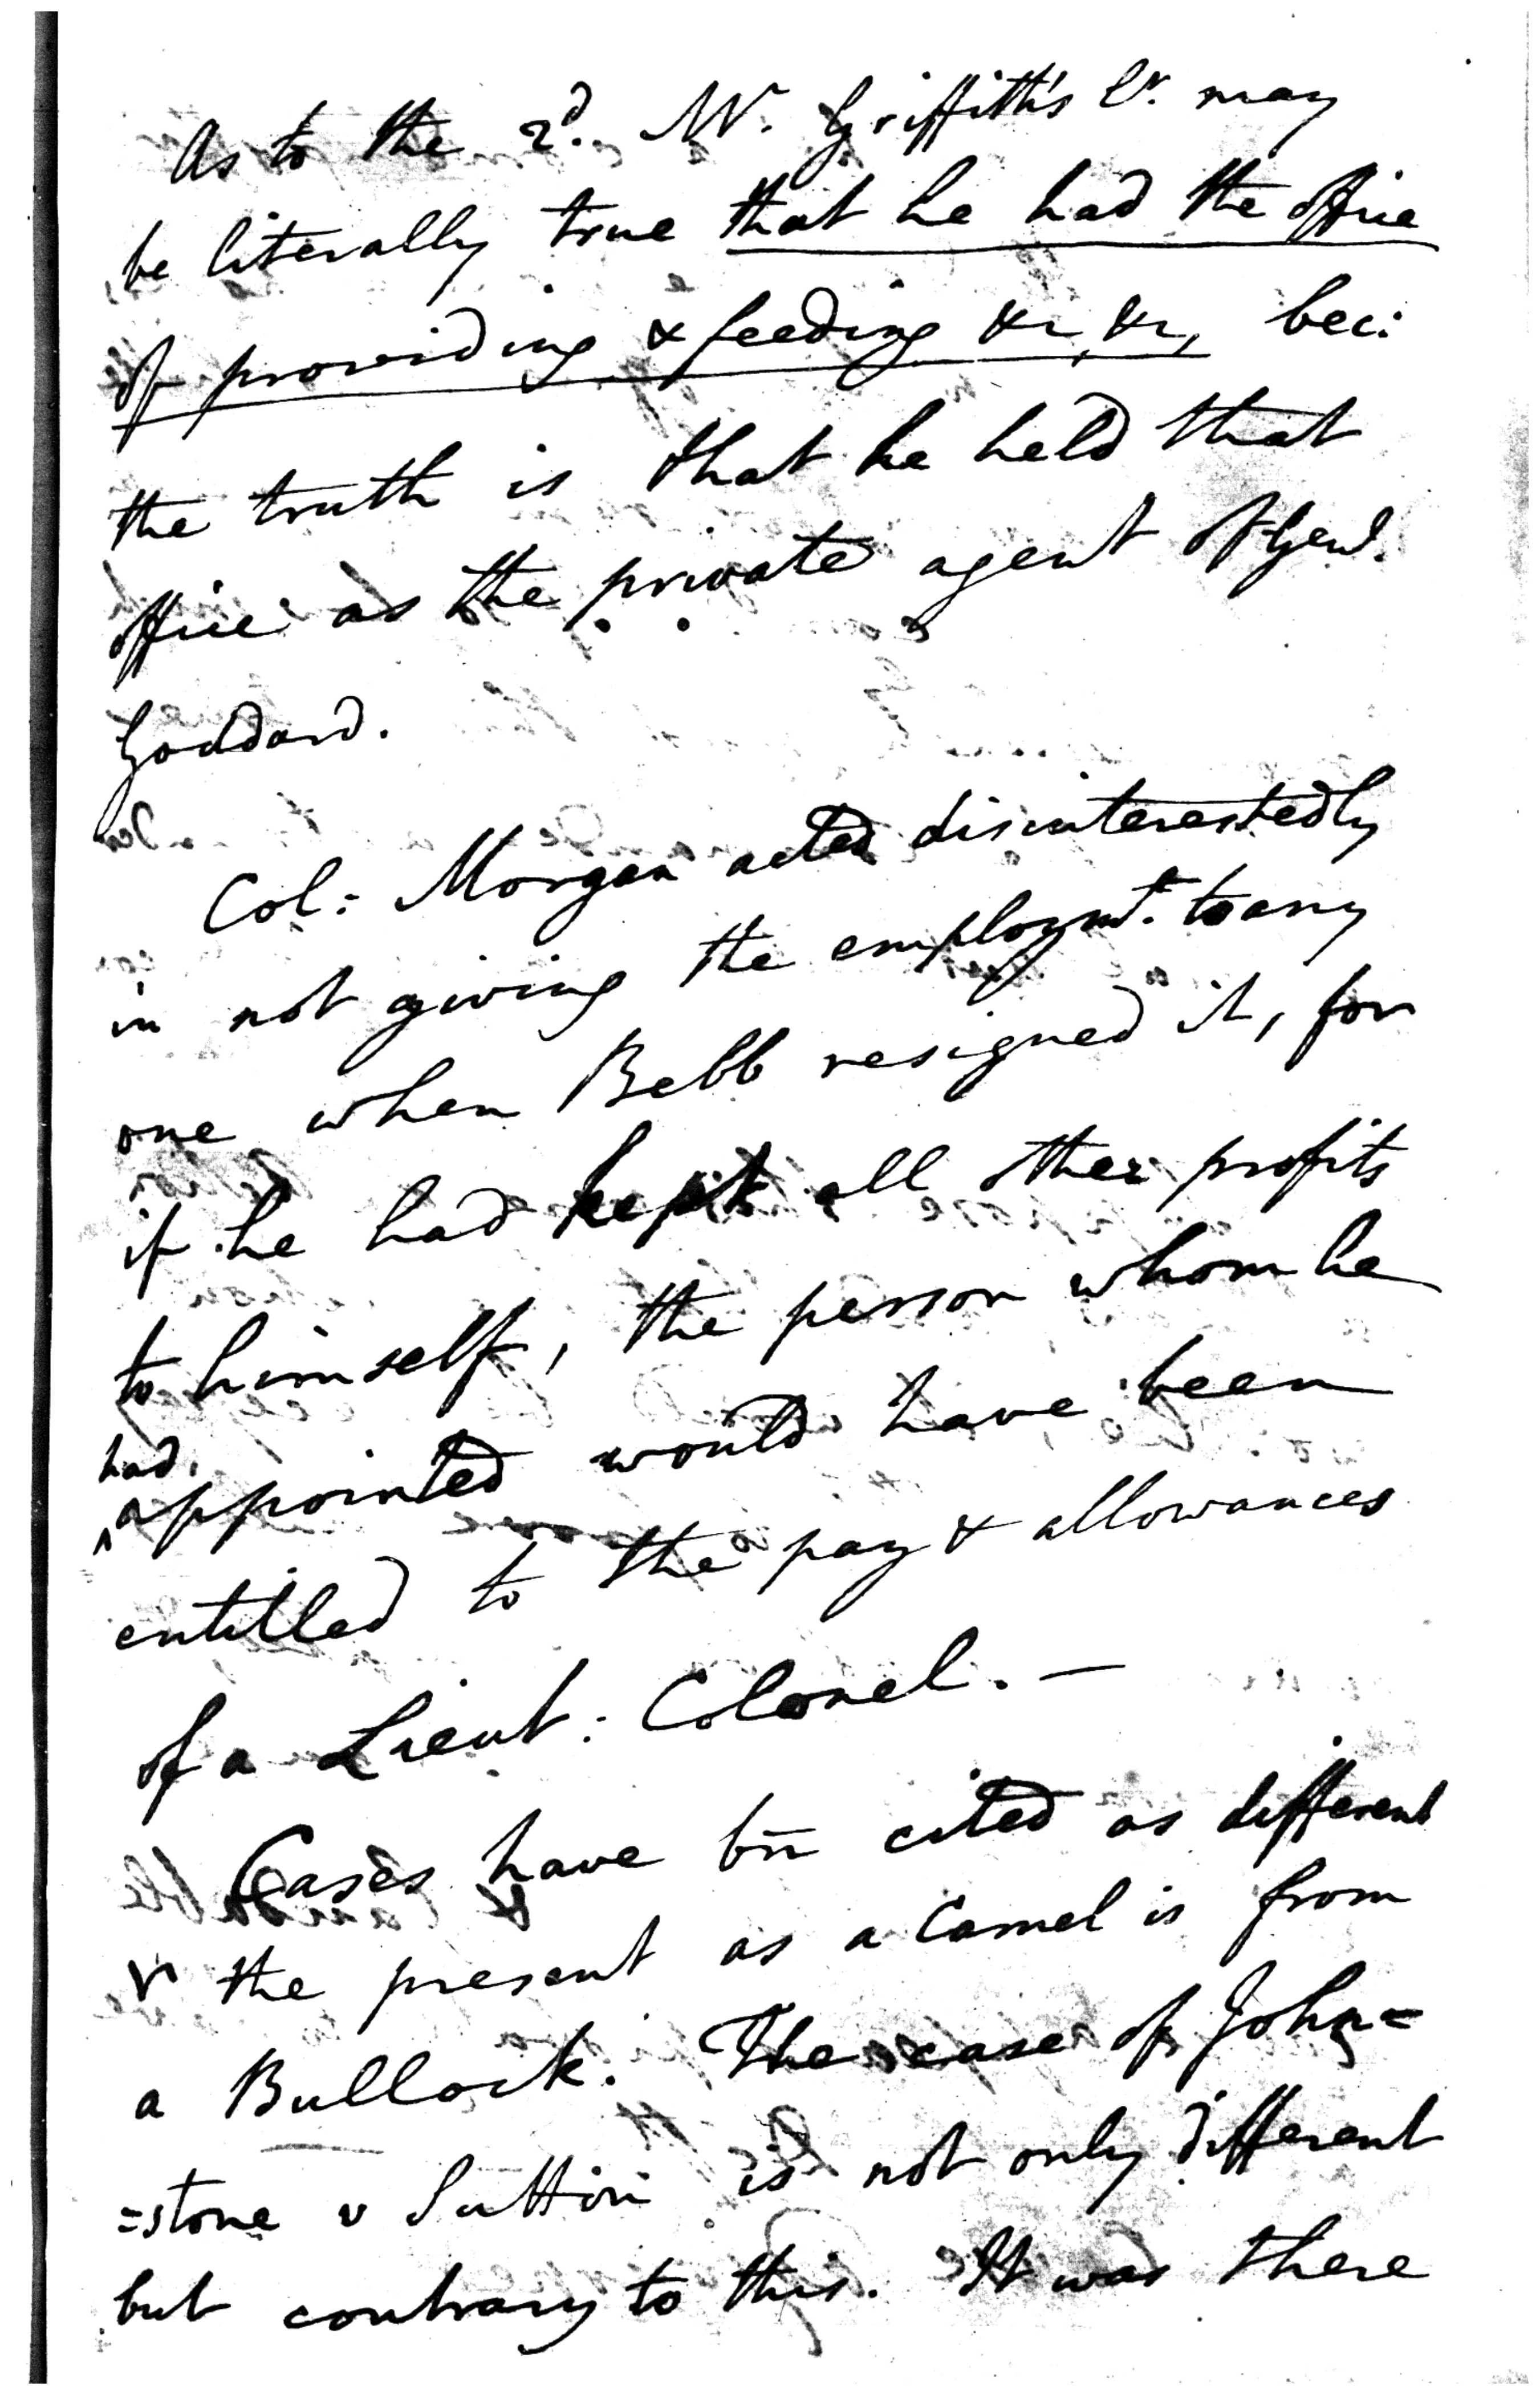 As to the 2d. Mr. Griffith's Er. may
be literally true that he had the office
of providing & feeding &c, &c, bec:
the truth is that he held that
office as the private agent of Genl.
Goddard.
Col: Morgan acted disinterestedly
in not giving the employmt. to any
one when Bebb resigned it, for
if he had kept all other profits
to himself, the person whom he
had
^appointed would have been
entitled to the pay & allowances
of a Lieut: Colonel. —
Cases have bn̄ cited as different
the present as a Camel is from
a Bullock. The case of John=
=stone v Sutton is not only different
but contrary to this. It was there